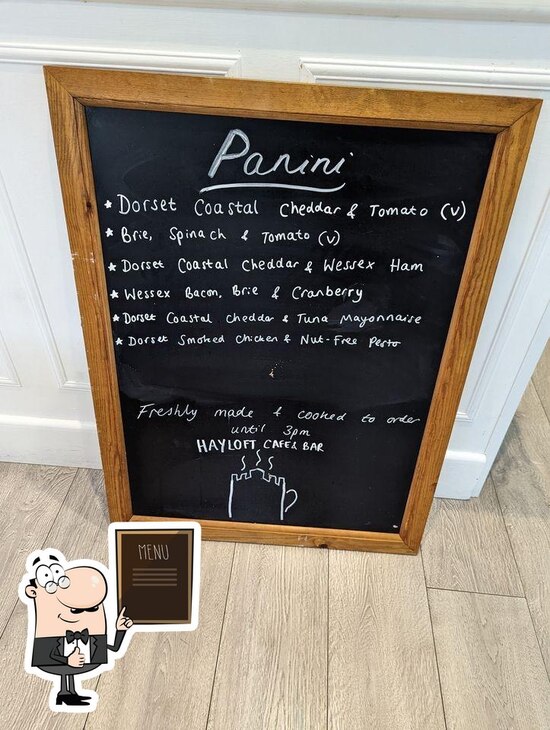 Panini
* Dorset Coastal Cheddar & Tomato (v)
* Brie, Spinach & Tomato (v)
* Dorset Coastal Cheddar & Wessex Ham
* Wessex Bacon, Brie & Cranberry
* Dorset Coastal Cheddar & Tuna Mayonnaise
* Dorset Smoked Chicken & Nut-Free Pesto
Freshly made & cooked to order
until 3pm
HAYLOFT CAFE & BAR
MENU